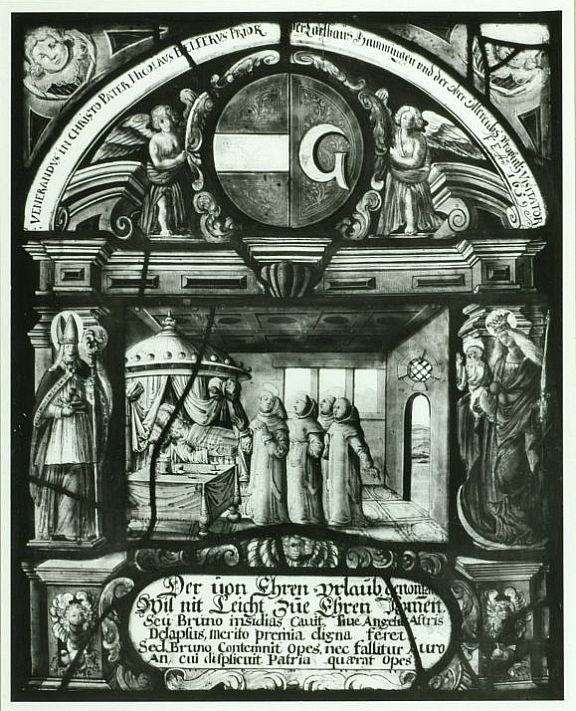 VENERANDUS IN CHRISTO PATER NICOLAVS HELFERVS PRIOR
Der Carthaus und der
VISITATOR
1639
G
Der von Ehren Vrlaub
Wil nit Leicht Zue Ehren
Seu Bruno insidias Cavit, Angelis Astris
Delapsus, merito premia digna feret
Sed Bruno Contemnit Opes, nec fallitur Auro
An, cui displicuit Patria quærat Opes